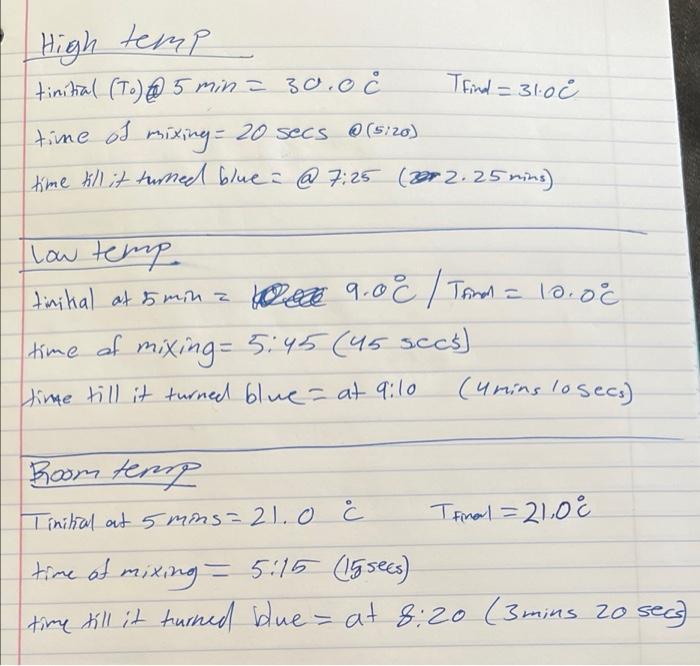 High temp
tinitial (To) @ 5 min = 30.0 °C TFinal = 31.0 °C
time of mixing = 20 secs @ (5:20)
time till it turned blue = @ 7:25 (2.25 mins)
Low temp.
tinitial at 5 min = 9.0 °C / TFinal = 10.0 °C
time of mixing = 5:45 (45 secs)
time till it turned blue = at 9:10 (4 mins 10 secs)
Room temp
Tinitial at 5 mins = 21.0 °C TFinal = 21.0 °C
time of mixing = 5:15 (15 secs)
time till it turned blue = at 8:20 (3 mins 20 secs)